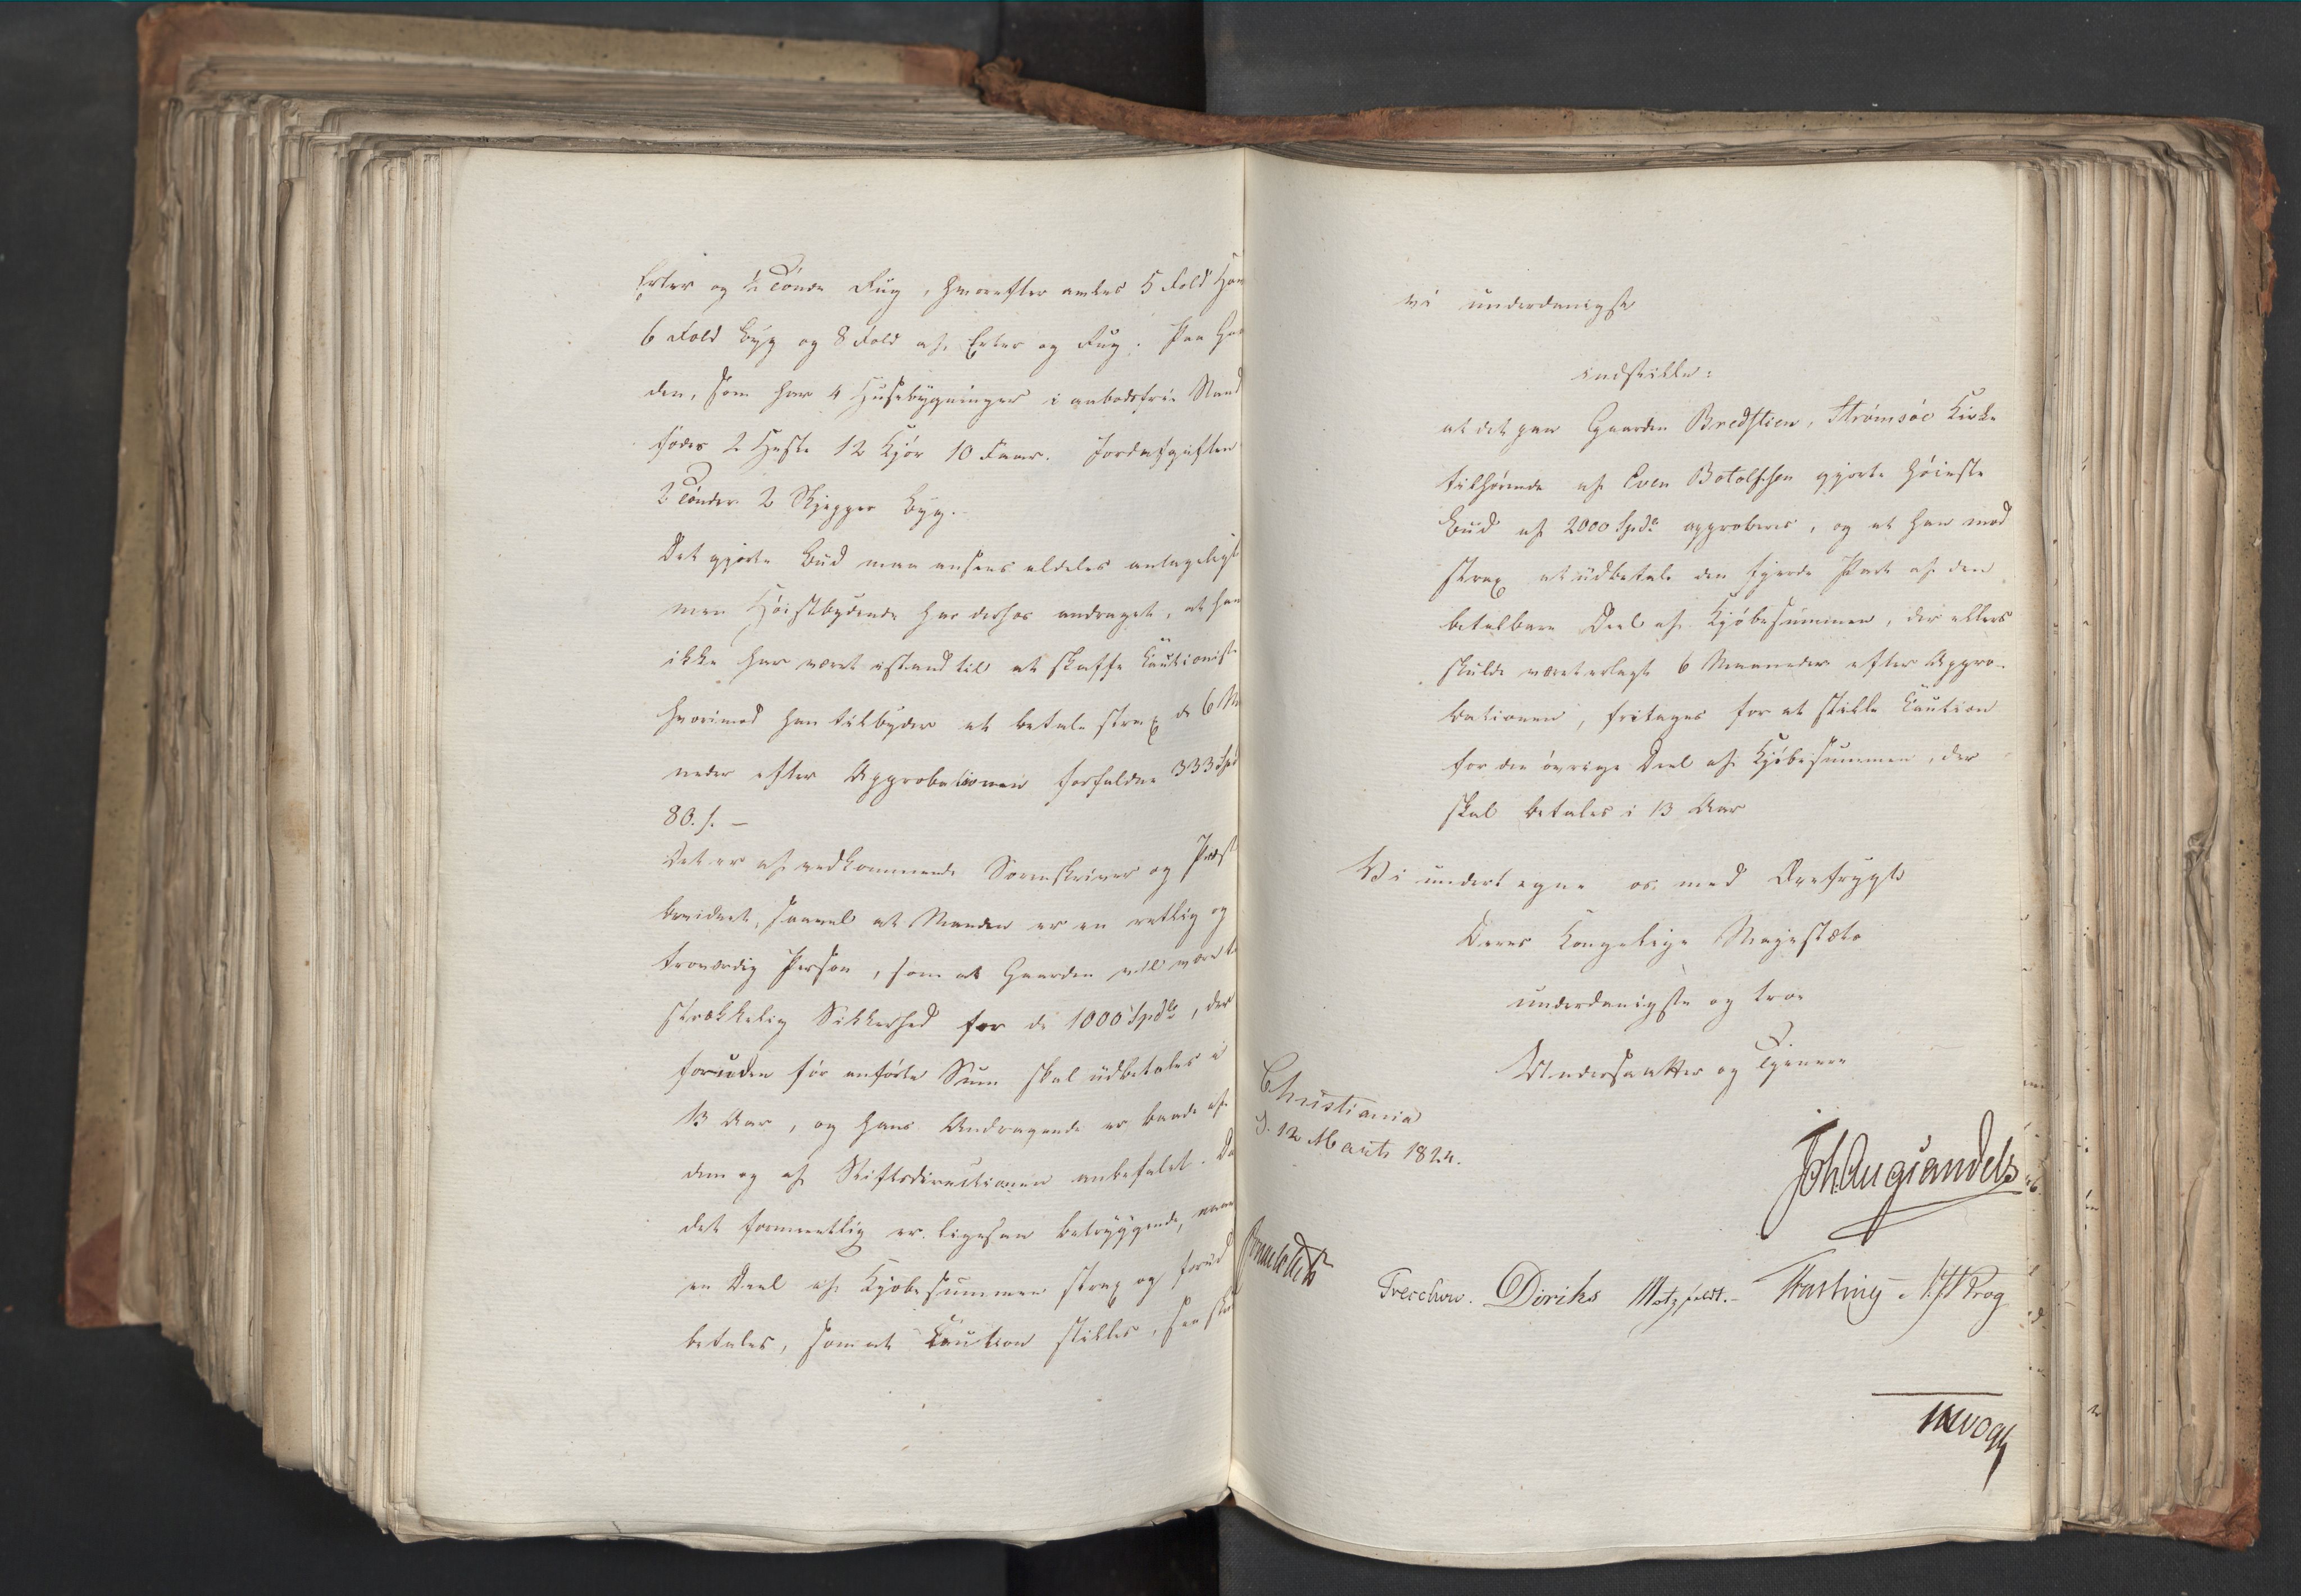 Erter og ½ Tønde Rug, hvorefter avles 5 Fold Hav
6 Fold Byg og 8 Fold af Erter og Rug. Paa Gaar
den, som har 4 Husebygninger i aabodsfrie Stand
födes 2 Heste 12 Kjör 10 Faar. Jordafgiften
2 Tönder 2 Skjepper Byg.
Det gjorte Bud maa ansees aldeles antageligt
men Höistbydende har derhos andraget, at han
ikke har været istand til at skaffe Cautionist
hvorimod han tilbyder at betale strax de 6 M
neder efter Approbationen forfaldne 333 Spd
80. s. –
Det er af vedkommende Sorenskriver og Præst
bevidnet, saavel at Manden er en retlig og
troværdig Person, som at Gaarden vil være ti
strækkelig Sikkerhed for de 1000 Spdlr, der
foruden för anförte Sum skal udbetales i
13 Aar, og hans Andragende er baade af
dem og af Stiftsdirectionen anbefalet. Da
det formeentlig er ligesaa betryggende, naar
en Deel af Kjöbesummen strax og forud
betales, som at Caution stilles, saa skul
vi underdanigst
indstille:
at det paa Gaarden Bredstien, Strömsöe Kirke
tilhörende af Even Botolfsen gjorte höieste
Bud af 2000 Spdr approberes, og at han mod
strax at udbetale den fjerde Part af den
betalbare Deel af Kjöbesummen, der ellers
skulde været erlagt 6 Maaneder efter Appro-
bationen, fritages for at stille Caution
for den övrige Deel af Kjöbesummen, der
skal betales i 13 Aar
Vi undertegne os med Ærefrygt
Deres Kongelige Majestæts
underdanigste og troe
Undersaatter og Tjenere
Christiania
d. 12 Marts 1824.
Joh. Aug. Sandels
Sommerhielm
Treschow. Diriks Motzfeldt. – Fasting – Krog
Vogt